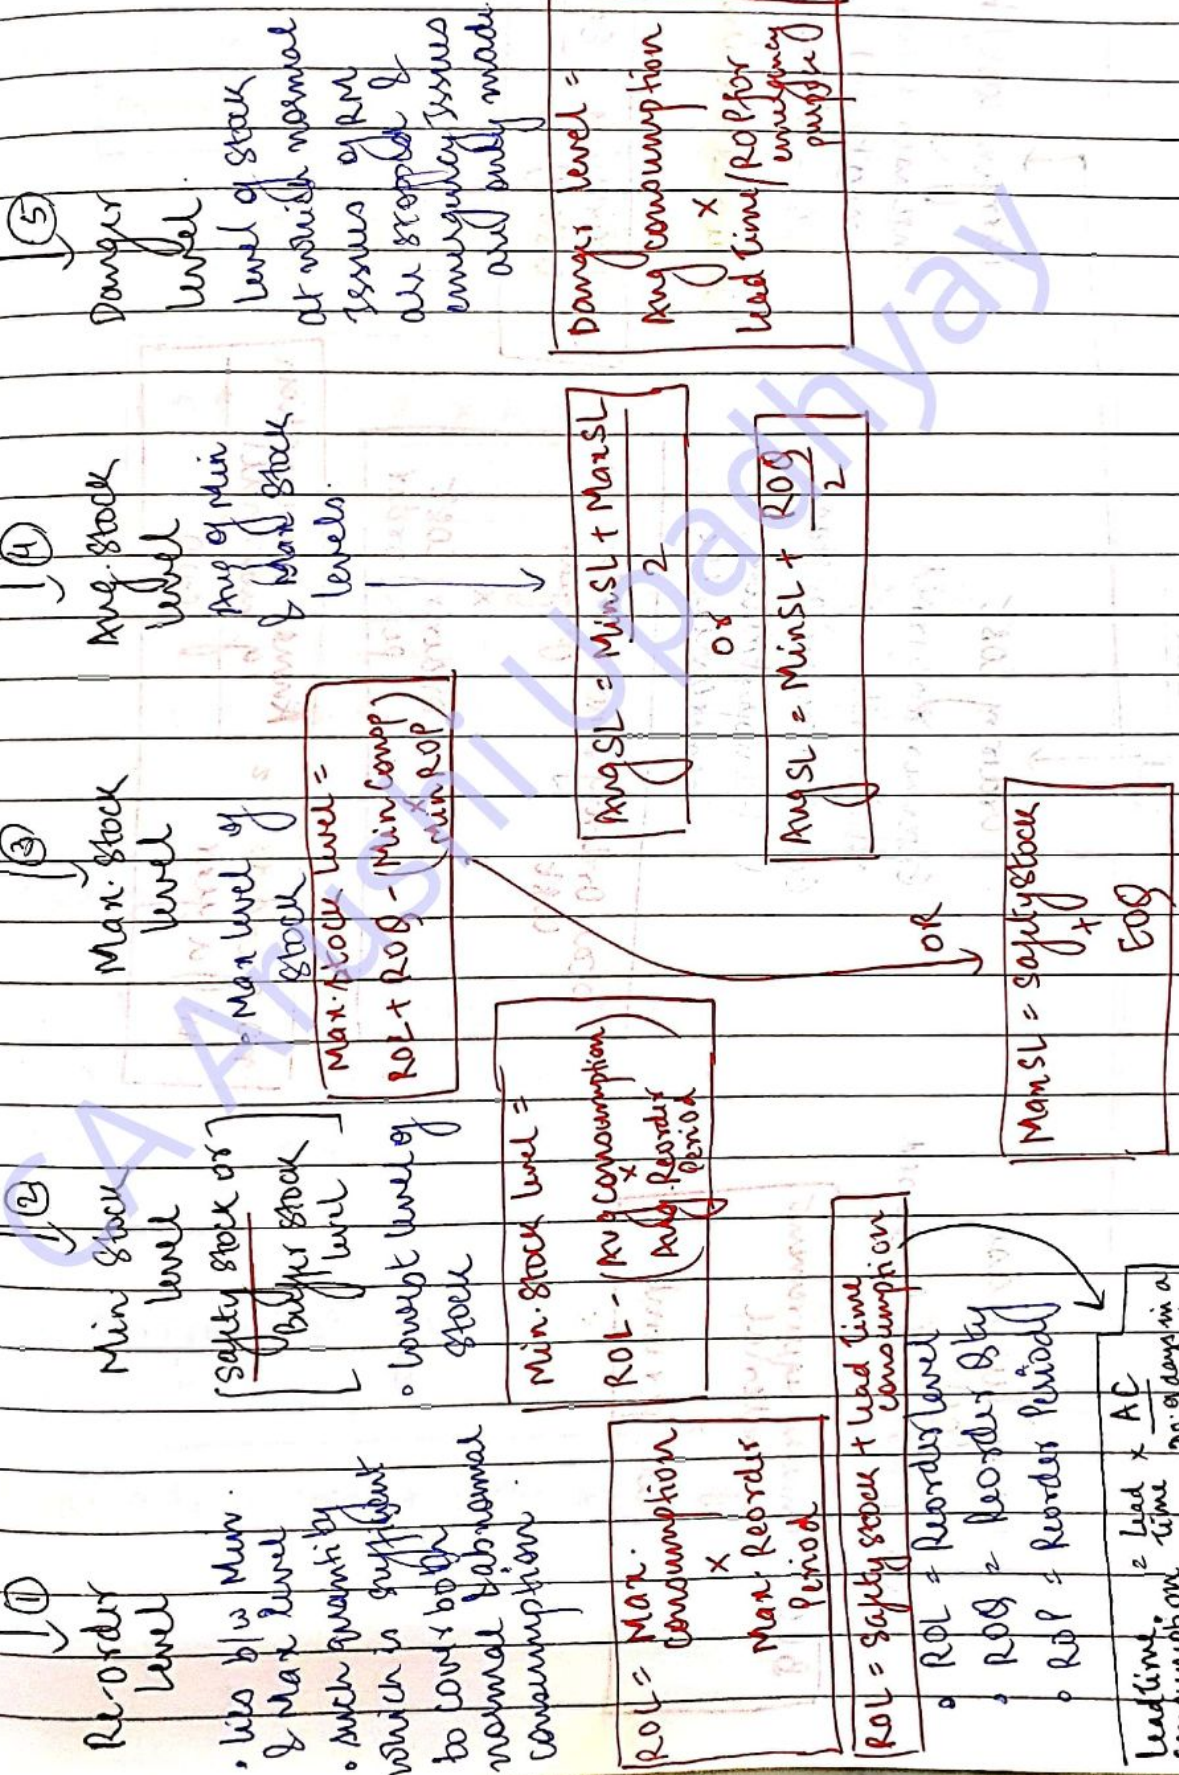 ①
Re-order
level
• lies b/w Min.
& Max level
• such quantity
which is sufficient
to cover both
normal & abnormal
consumption.
ROL = Max.
consumption
×
Max. Reorder
Period
ROL = Safety stock + lead time
consumption
• ROL = Reorder level
• ROQ = Reorder Qty
• ROP = Reorder Period
Lead time = Lead time × AC
no. of days in a
②
Min Stock
level
[Safety stock or
Buffer stock
level]
• lowest level of
stock
Min. Stock level =
ROL - (Avg consumption
×
Avg. Reorder
Period)
③
Max. Stock
level
• Max level of
stock
Max. stock level =
ROL + ROQ - (Min Consp
×
Min ROP)
OR
Max SL = Safety stock
+
EOQ
④
Avg. Stock
level
Avg of Min
& Max Stock
levels.
Avg SL = Min SL + Max SL
2
or
Avg SL = Min SL + ROQ
2
⑤
Danger
level
level of stock
at which normal
issues of RM
are stopped &
emergency issues
are only made
Danger level =
Avg consumption
×
lead time/ROP for
emergency
purpose
CA Arushi Upadhyay